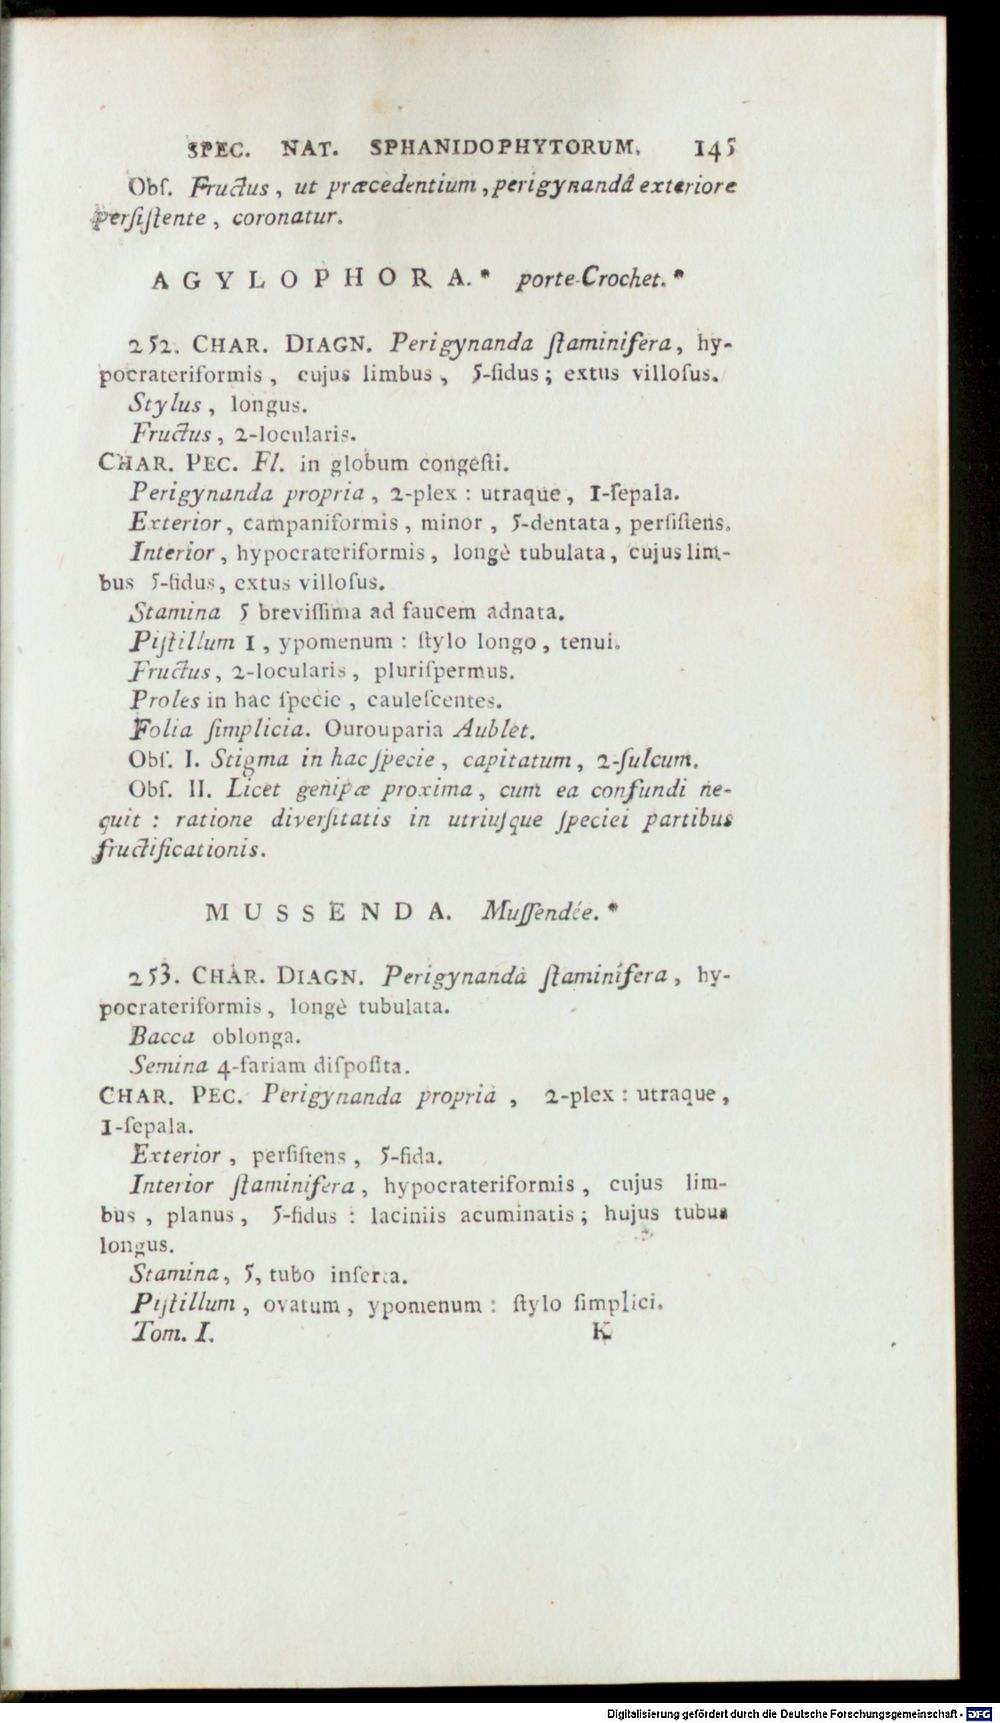 SPEC. NAT. SPHANIDOPHYTORUM. 145
Obſ. Fructus, ut præcedentium, perigynandâ exteriore
perſiſtente, coronatur.
AGYLOPHORA.* porte-Crochet.*
252. CHAR. DIAGN. Perigynanda ſtaminifera, hy-
pocrateriformis, cujus limbus, 5-fidus; extus villoſus.
Stylus, longus.
Fructus, 2-locularis.
CHAR. PEC. Fl. in globum congeſti.
Perigynanda propria, 2-plex : utraque, 1-ſepala.
Exterior, campaniformis, minor, 5-dentata, perſiſtens.
Interior, hypocrateriformis, longè tubulata, cujus lim-
bus 5-fidus, extus villoſus.
Stamina 5 breviſſima ad faucem adnata.
Piſtillum 1, ypomenum : ſtylo longo, tenui.
Fructus, 2-locularis, pluriſpermus.
Proles in hac ſpecie, cauleſcentes.
Folia ſimplicia. Ourouparia Aublet.
Obſ. I. Stigma in hac ſpecie, capitatum, 2-ſulcum.
Obſ. II. Licet genipæ proxima, cum ea confundi ne-
quit : ratione diverſitatis in utriuſque ſpeciei partibus
fructificationis.
MUSSENDA. Muſſendée.*
253. CHAR. DIAGN. Perigynanda ſtaminifera, hy-
pocrateriformis, longè tubulata.
Bacca oblonga.
Semina 4-fariam diſpoſita.
CHAR. PEC. Perigynanda propria, 2-plex : utraque,
1-ſepala.
Exterior, perſiſtens, 5-fida.
Interior ſtaminifera, hypocrateriformis, cujus lim-
bus, planus, 5-fidus : laciniis acuminatis; hujus tubus
longus.
Stamina, 5, tubo inſerta.
Piſtillum, ovatum, ypomenum : ſtylo ſimplici.
Tom. I. K
Digitalisierung gefördert durch die Deutsche Forschungsgemeinschaft - DFG